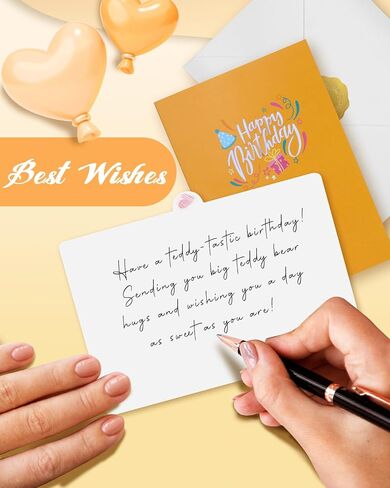 Happy
Birthday
Best Wishes
Have a teddy-tastic birthday!
Sending you big teddy bear
hugs and wishing you a day
as sweet as you are!